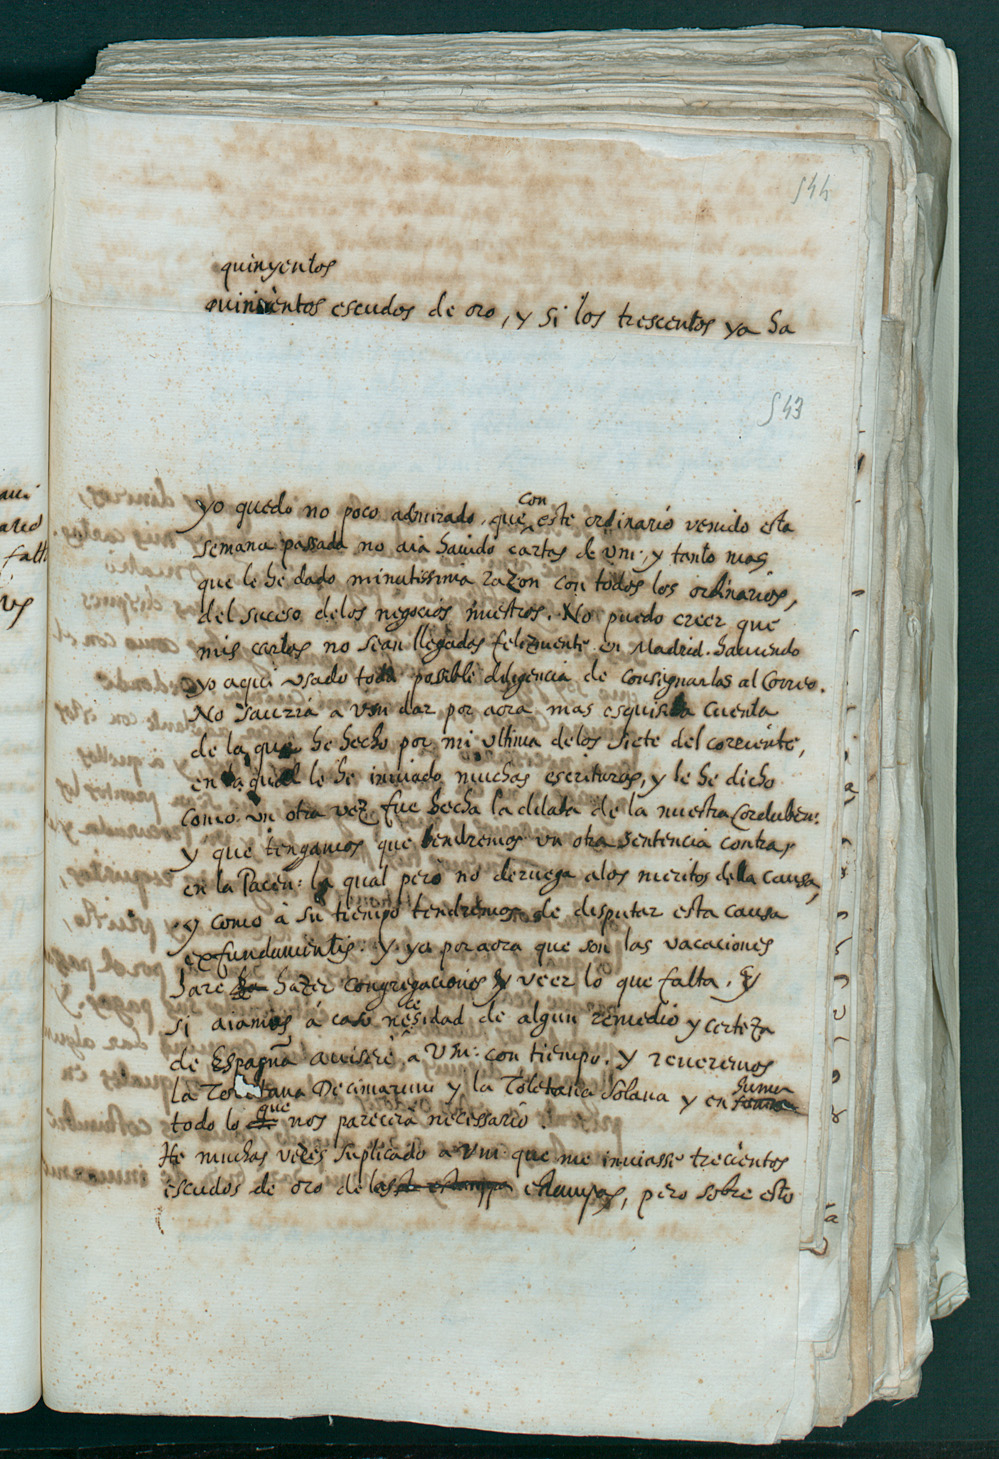 544
quinyentos
quinientos escudos de oro, y si los trescentos ya ha
543
yo quedo no poco admirado, que con este ordinario venido esta
semana passada no aia havido cartas de Vm:, y tanto mas
que le he dado minutissima razon con todos los ordinarios,
del suceso delos negocios nuestros. No puedo creer que
mis cartas no sean llegadas felizmente en Madrid. haviendo
yo aqui usado toda possible diligencia de consignarlas al Correo.
No sauria a Vm dar por aora mas esquisita cuenta
de la que he hecho por mi ultima delos siete del corriente,
en la qual le he inviado muchas escrituras, y le he dicho
como un otra vez fue hecha la dilata de la nuestra Corduben:
y que tengamos que tendremos un otra sentencia contra
en la Pacen: la qual però no deruega alos meritos de la causa,
y como à su tiempo tendremos de disputar esta causa
ex fundamentis. y ya por aora que son las vacaciones
hare ha hazer congregaciones y veer lo que falta. y
si aiamos à caso necesidad de algun remedio y certeza
de Espagña aviserè a Vm: con tiempo. y reveremos
la Decimarum y la Toletana Solana y en suma
todo lo que nos parecerà necessario.
He muchas veces suplicado a Vm: que me inviasse trecientos
escudos de oro de las de estampa estampas, pero sobre esto